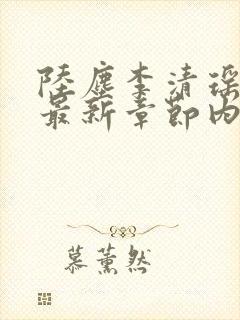 陆尘李清瑶
最新章节内
慕薰然